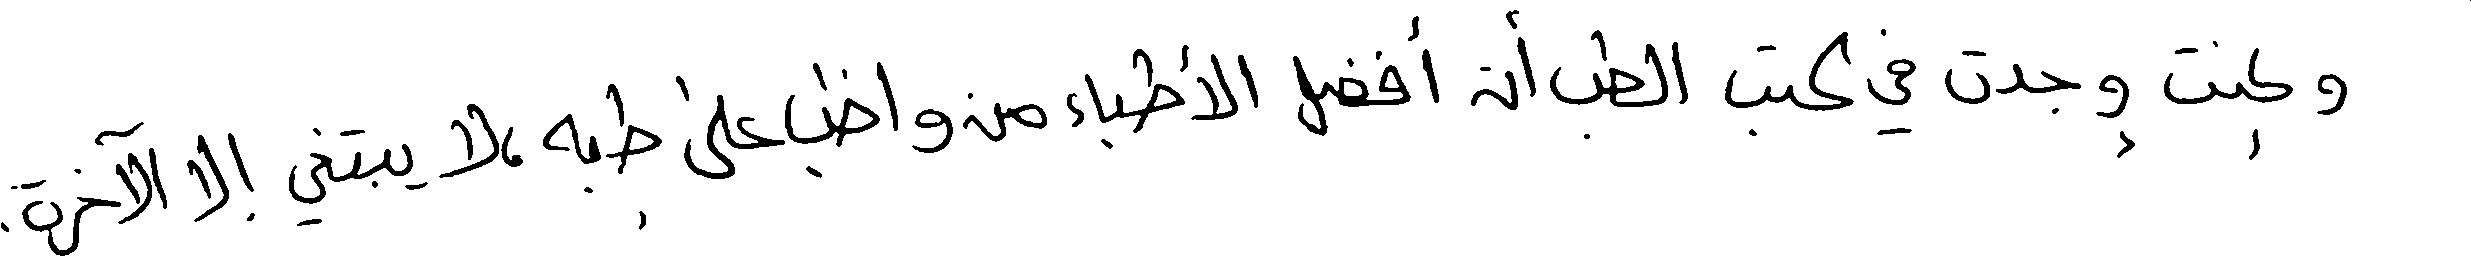 وكنت وجدت في كتب الطب أن أفضل الأطباء من واظب على طبه، لا يبتغي إلا الآخرة.